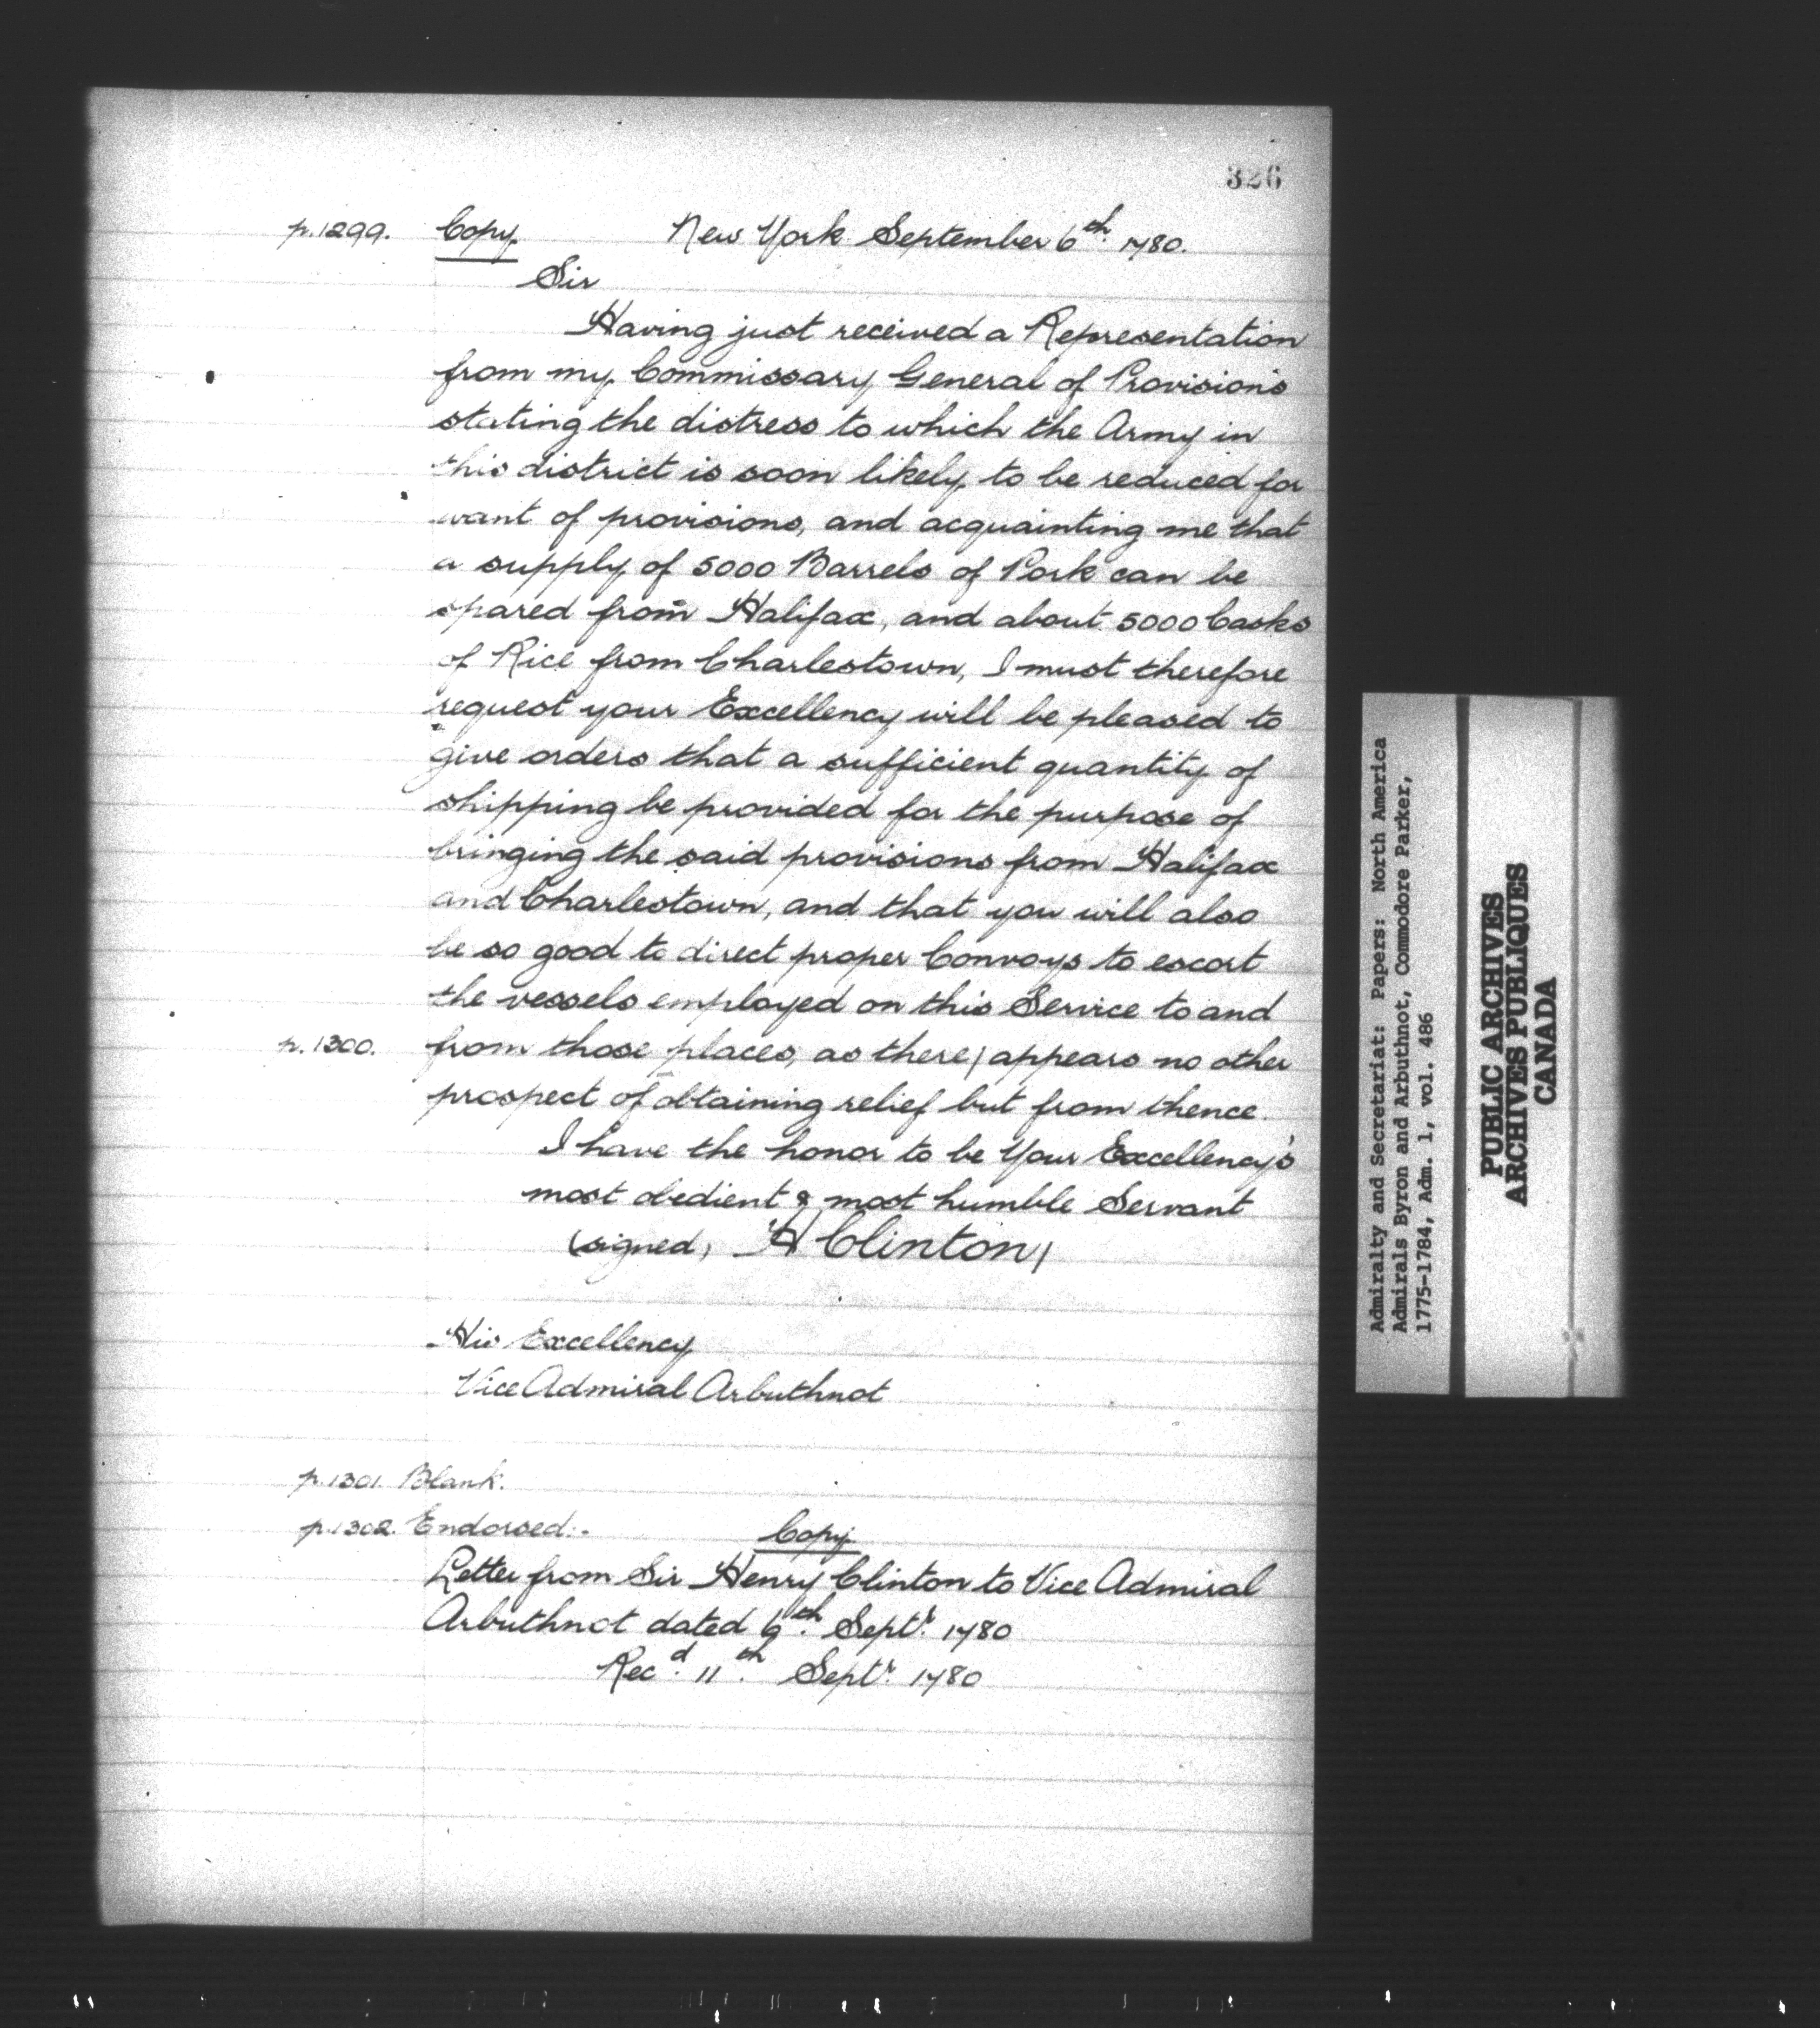 326
p.1299. Copy. New York September 6th. 1780.
Sir
Having just received a Representation
from my Commissary General of Provisions
stating the distress to which the Army in
this district is soon likely to be reduced for
want of provisions, and acquainting me that
a supply of 5000 Barrels of Pork can be
spared from Halifax, and about 5000 Casks
of Rice from Charlestown, I must therefore
request your Excellency will be pleased to
give orders that a sufficient quantity of
shipping be provided for the purpose of
bringing the said provisions from Halifax
and Charlestown, and that you will also
be so good to direct proper Convoys to escort
the vessels employed on this Service to and
p.1300. from those places, as there/appears no other
prospect of obtaining relief but from thence.
I have the honor to be Your Excellency's
most obedient & most humble Servant
(signed) H Clinton/
His Excellency
Vice Admiral Arbuthnot
p.1301. Blank.
p.1302. Endorsed:-
Copy
Letter from Sir Henry Clinton to Vice Admiral
Arbuthnot dated 6th. Septr. 1780
Recd. 11th. Septr. 1780
Admiralty and Secretariat: Papers: North America
Admirals Byron and Arbuthnot, Commodore Parker,
1775-1784, Adm. 1, vol. 486
PUBLIC ARCHIVES
ARCHIVES PUBLIQUES
CANADA